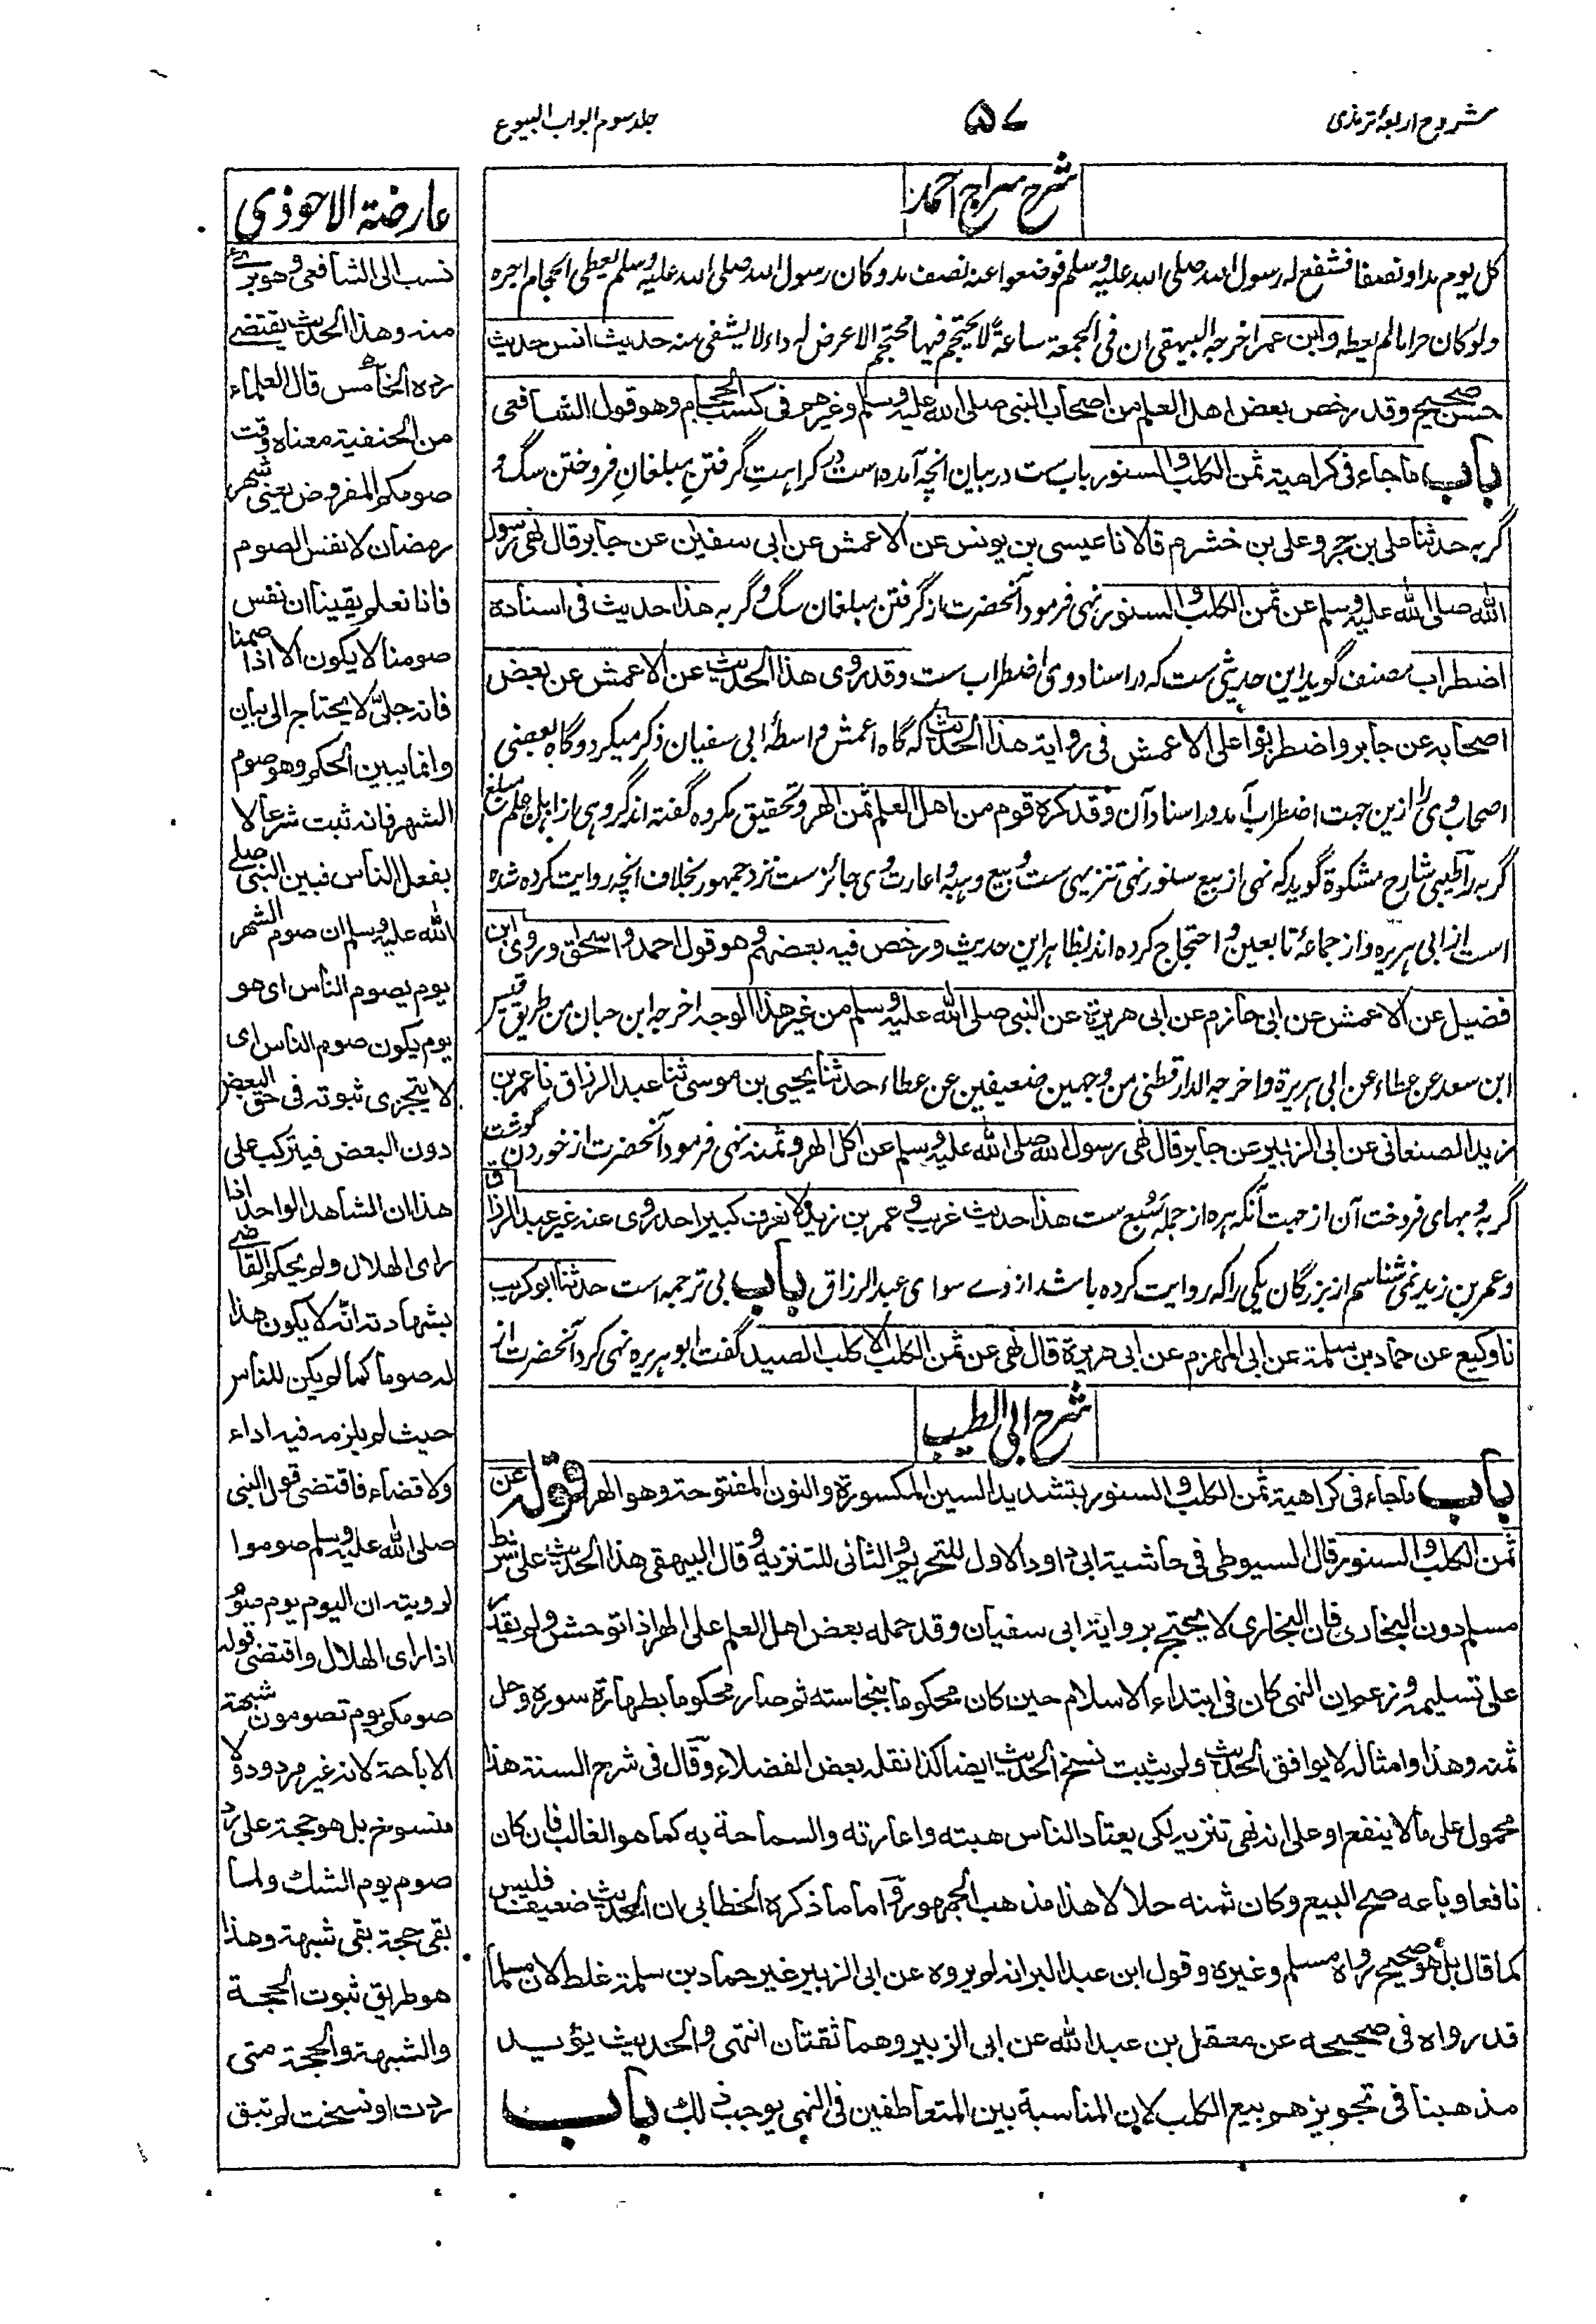 شروح اربعۂ ترمذی
۵۷
جلد سوم ابواب البیوع
شرح سراج احمد
کل یوم مدا و نصفا فشفع له رسول الله صلی الله علیه وسلم فوضعوا عنه نصف مد و کان رسول الله صلی الله علیه وسلم یعطی الحجام اجره
ولو کان حراما لم یعطه وابن عمر اخرجه البیهقی ان فی الجمعة ساعة لا یحتجم فیها محتجم الا عرض له داء لا یشفی منه حدیث انس حدیث
حسن صحیح وقد رخص بعض اهل العلم من اصحاب النبی صلی الله علیه وسلم وغیرهم فی کسب الحجام وهو قول الشافعی
باب ماجاء فی کراهیة ثمن الکلب والسنور باب ست در بیان انچه آمده است در کراهت گرفتن مبلغان فروختن سگ و
گربه حدثنا علی بن حجر و علی بن خشرم قالا نا عیسی بن یونس عن الاعمش عن ابی سفین عن جابر قال نهی رسول
الله صلی الله علیه وسلم عن ثمن الکلب والسنور نهی فرمود آنحضرت از گرفتن مبلغان سگ و گربه هذا حدیث فی اسناده
اضطراب مصنف گوید این حدیثی ست که در اسناد وی اضطراب ست وقد روی هذا الحدیث عن الاعمش عن بعض
اصحابه عن جابر واضطربوا علی الاعمش فی روایة هذا الحدیث که گاه اعمش واسطۂ ابی سفیان ذکر میکرد و گاه بعضی
اصحاب وی را ازین جهت اضطراب آمد در اسناد آن وقد کره قوم من اهل العلم ثمن الهر و تحقیق مکروه گفته اند گروهی از اهل علم مبلغ
گربه را طیبی شارح مشکوة گوید که نهی از بیع سنور نهی تنزیهی ست و بیع و هبه و اعارت وی جائز ست نزد جمهور بخلاف انچه روایت کرده شده
است از ابی هریره و از جماعۂ تابعین و احتجاج کرده اند بظاهر این حدیث ورخص فیه بعضهم وهو قول احمد واسحاق وروی ابن
فضیل عن الاعمش عن ابی حازم عن ابی هریرة عن النبی صلی الله علیه وسلم من غیر هذا الوجه اخرجه ابن حبان من طریق قیس
ابن سعد عن عطاء عن ابی هریرة واخرجه الدارقطنی من وجهین ضعیفین عن عطاء حدثنا یحیی بن موسی ثنا عبد الرزاق نا عمر بن
زید الصنعانی عن ابی الزبیر عن جابر قال نهی رسول الله صلی الله علیه وسلم عن اکل الهر وثمنه نهی فرمود آنحضرت از خوردن گوشت
گربه و بهای فروخت آن از جهت آنکه هره از جمله سبع ست هذا حدیث غریب وعمر بن زید لا نعرف کبیر احد روی عنه غیر عبد الرزاق
و عمر بن زید نمی شناسم از بزرگان یکی را که روایت کرده باشد از وے سوای عبد الرزاق باب بی ترجمه است حدثنا ابو کریب
نا وکیع عن حماد بن سلمة عن ابی المهزم عن ابی هریرة قال نهی عن ثمن الکلب الا کلب الصید گفت ابو هریره نهی کرد آنحضرت از
شرح ابی الطیب
باب ماجاء فی کراهیة ثمن الکلب والسنور بتشدید السین المکسورة والنون المفتوحة وهو الهر قوله عن
ثمن الکلب والسنور قال السیوطی فی حاشیة ابی داود الاول للتحریم والثانی للتنزیه وقال البیهقی هذا الحدیث علی شرط
مسلم دون البخاری فان البخاری لا یحتج بروایة ابی سفیان وقد حمله بعض اهل العلم علی الهر اذا توحش ولم یقدر
علی تسلیمه وزعم ان النهی کان فی ابتداء الاسلام حین کان محکوما بنجاسته ثم صار محکوما بطهارة سوره وحل
ثمنه وهذا وامثاله لا یوافق الحدیث ولم یثبت نسخ الحدیث ایضا کذا نقله بعض الفضلاء وقال فی شرح السنة هذا
محمول علی مالا ینفع او علی انه نهی تنزیه لکی یعتاد الناس هبته واعارته والسماحة به کما هو الغالب فان کان
نافعا وباعه صح البیع وکان ثمنه حلالا هذا مذهب الجمهور واما ما ذکره الخطابی ان الحدیث ضعیف فلیس
کما قال بل هو صحیح رواه مسلم وغیره وقول ابن عبد البر انه لم یروه عن ابی الزبیر غیر حماد بن سلمة غلط لان مسلما
قد رواه فی صحیحه عن معقل بن عبد الله عن ابی الزبیر وهما ثقتان انتهی والحدیث یؤید
مذهبنا فی تجویز هو بیع الکلب لان المناسبة بین المتعاطفین فی النهی یوجب ذلك باب
عارضة الاحوذی
نسب الی الشافعی وهو برئ
منه وهذا الحدیث یقتضی
رده الخامس قال العلماء
من الحنفیة معناه وقت
صومکم المفروض یعنی شهر
رمضان لا نفس الصوم
فانا نعلم یقینا ان نفس
صومنا لا یکون الا اذا صمنا
فانه جلی لا یحتاج الی بیان
وانما یبین الحکم وهو صوم
الشهر فانه ثبت شرعا لا
بفعل الناس فبین النبی صلی
الله علیه وسلم ان صوم الشهر
یوم یصوم الناس ای هو
یوم یکون صوم الناس ای
لا یتجزی ثبوته فی حق البعض
دون البعض فیترکب علی
هذا ان الشاهد الواحد اذا
رای الهلال ولم یحکم القاضی
بشهادته انه لا یکون هذا
له صوما کما لم یکن للناس
حیث لم یلزمه فیه اداء
ولا قضاء فاقتضی قول النبی
صلی الله علیه وسلم صوموا
لرویته ان الیوم یوم صوم
اذا رای الهلال واقتضی قوله
صومکم یوم تصومون شبهة
الاباحة لانه غیر مردود ولا
منسوخ بل هو حجة علی رد
صوم یوم الشك ولما
بقی حجة بقی شبهة وهذا
هو طریق ثبوت الحجة
والشبهة والحجة متی
ردت او نسخت لم تبق